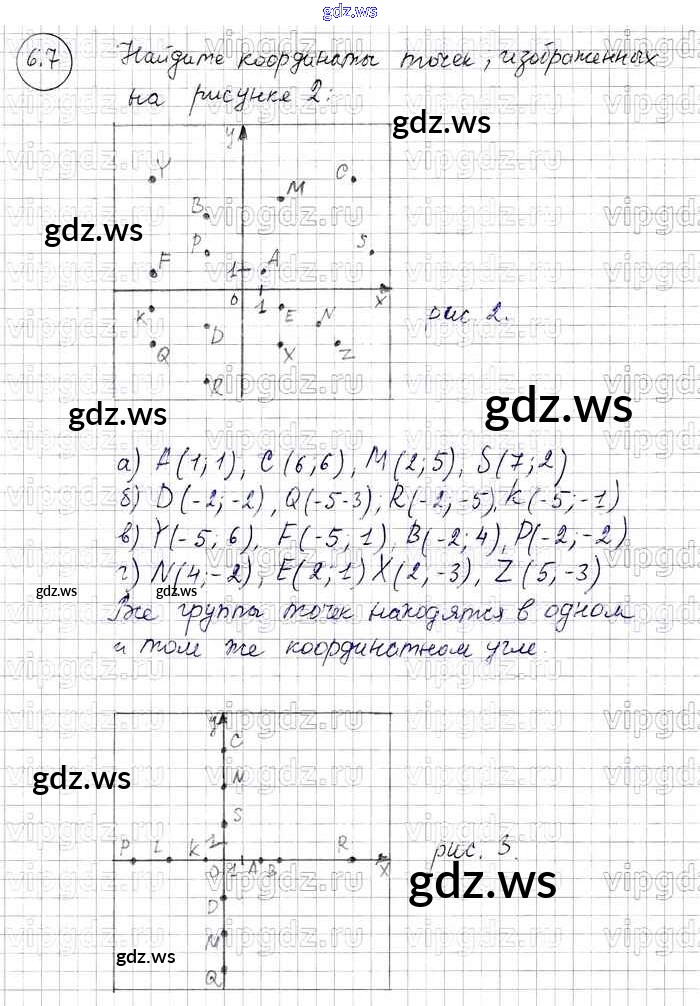 gdz.ws
6.7 Найдите координаты точек, изображенных
на рисунке 2:
y
Y C
M
B
P S
F 1 A
0 1 X
K E N
D
Q X Z
R
рис 2.
а) A(1; 1), C(6; 6), M(2; 5), S(7; 2)
б) D(-2; -2), Q(-5-3), R(-2; -5), K(-5; -1)
в) Y(-5; 6), F(-5; 1), B(-2; 4), P(-2; -2)
г) N(4; -2), E(2; 1) X(2, -3), Z(5, -3)
Все группы точек находятся в одном
и том же координатном угле.
y
C
N
S
1
P L K 0 1 A B R X
D
M
Q
рис. 3.
gdz.ws
gdz.ws
gdz.ws
gdz.ws
gdz.ws
gdz.ws
gdz.ws
gdz.ws
gdz.ws